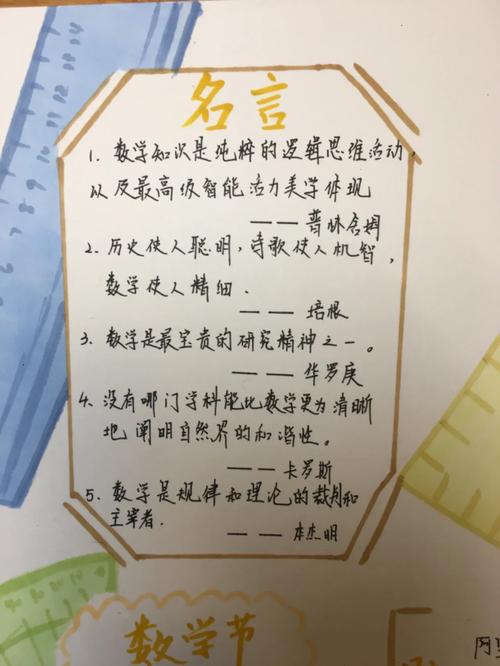 名言
1. 数学知识是纯粹的逻辑思维活动,
以及最高级智能活力美学体现
——普林舍姆
2. 历史使人聪明,诗歌使人机智,
数学使人精细.
——培根
3. 数学是最宝贵的研究精神之一。
——华罗庚
4. 没有哪门学科能比数学更为清晰
地阐明自然界的和谐性。
——卡罗斯
5. 数学是规律和理论的裁判和
主宰者.
——本杰明
数学节